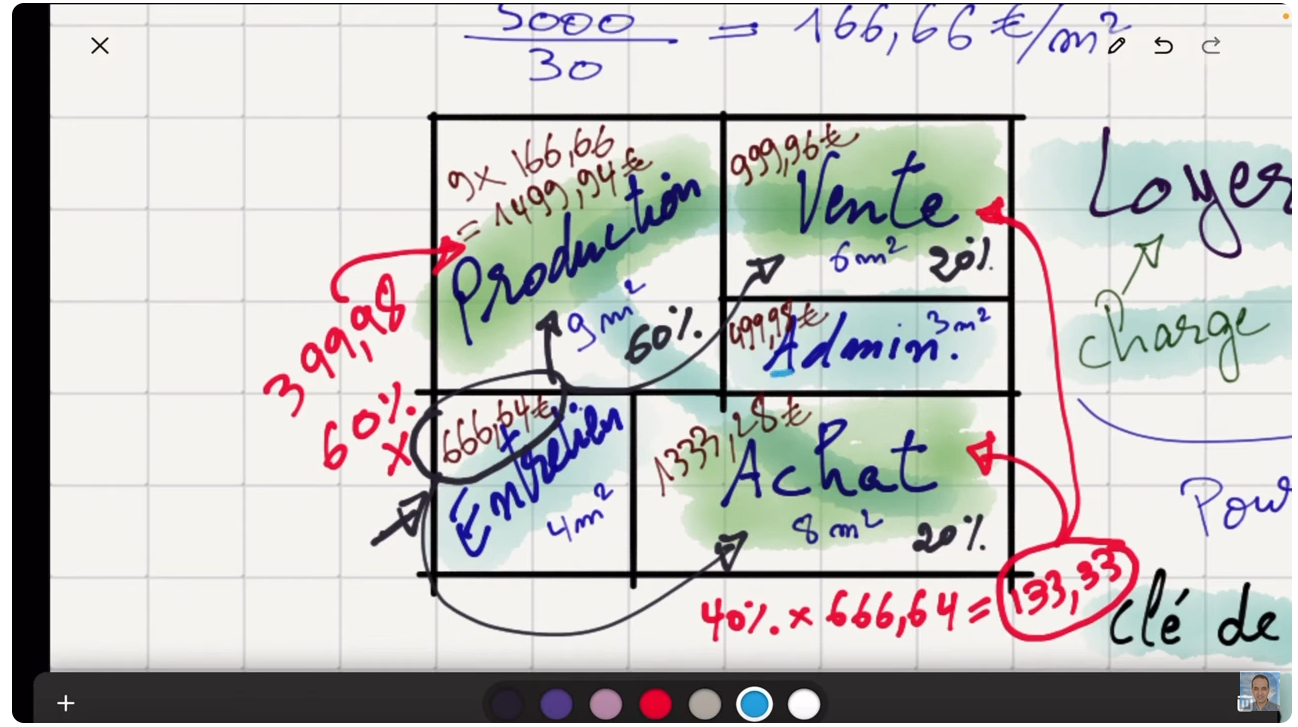 5000
30
= 166,66 €/m²
9 x 166,66
= 1499,94€
Production
9 m²
60%
999,96€
Vente
6m² 20%
499,98€
Admin. 3m²
666,64€
Entretien
4m²
1333,28€
Achat
8 m² 20%
399,98
60%
x
40% x 666,64 = 133,33
Loyer
Charge
Pour
clé de